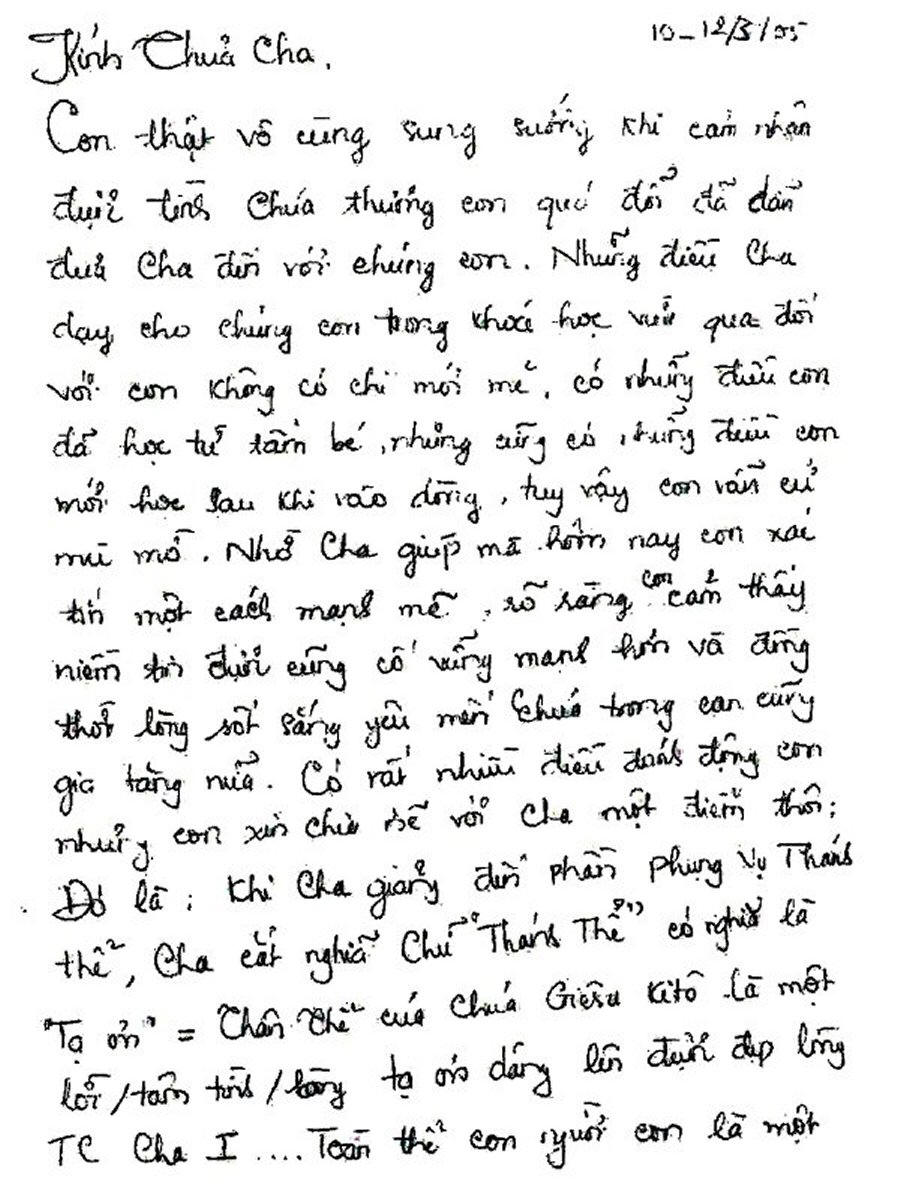 10-12/3/05
Kính Thưa Cha.
Con thật vô cùng sung sướng khi cảm nhận
được tình Chúa thương con quá đổi đã dẫn
đưa Cha đến với chúng con. Những điều Cha
dạy cho chúng con trong khoá học vừa qua đối
với con không có chi mới mẻ, có những điều con
đã học từ tấm bé, nhưng cũng có những điều con
mới học sau khi vào dòng, tuy vậy con vẫn cứ
mù mờ. Nhờ Cha giúp mà hôm nay con xác
tín một cách mạnh mẽ, rõ ràng con cảm thấy
niềm tin được cũng cố vững mạnh hơn và đồng
thời lòng sốt sắng yêu mến Chúa trong con cũng
gia tăng nữa. Có rất nhiều điều đánh động con
nhưng con xin chia sẻ với Cha một điểm thôi:
Đó là: Khi Cha giảng đến phần Phụng Vụ Thánh
thể, Cha cắt nghĩa Chữ "Thánh Thể" có nghĩa là
"Tạ ơn" = Thân thể của Chúa Giêsu Kitô là một
lời/tâm tình/lòng tạ ơn dâng lên được đẹp lòng
TC Cha I .... Toàn thể con người con là một